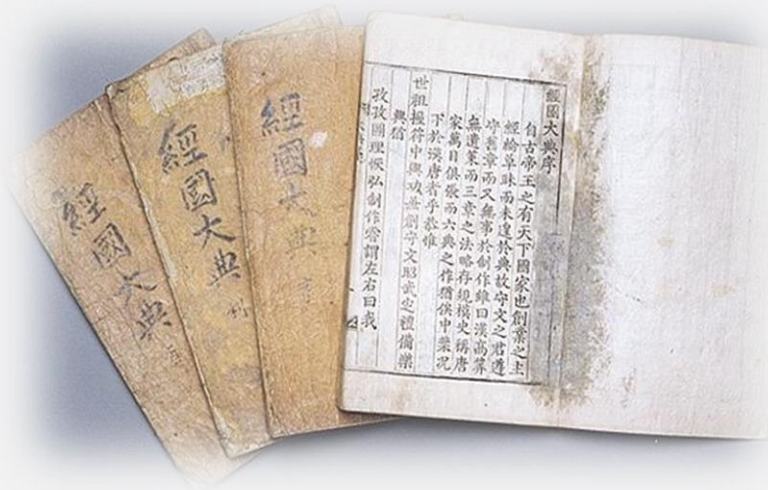 經國大典
經國大典
經國大典
經國大典序
自古帝王之有天下國家也創業之主
經綸草昧而未遑於典故守文之君遵
守舊章而又無事於制作雖曰漢高算
無遺策而三章之法略存規模史稱唐
家萬目俱張而六典之作猶俟中葉況
下於漢唐者乎恭惟
世祖握符中興功兼創守文昭武定禮備樂
興猶
孜孜圖理恢弘制作嘗謂左右曰我